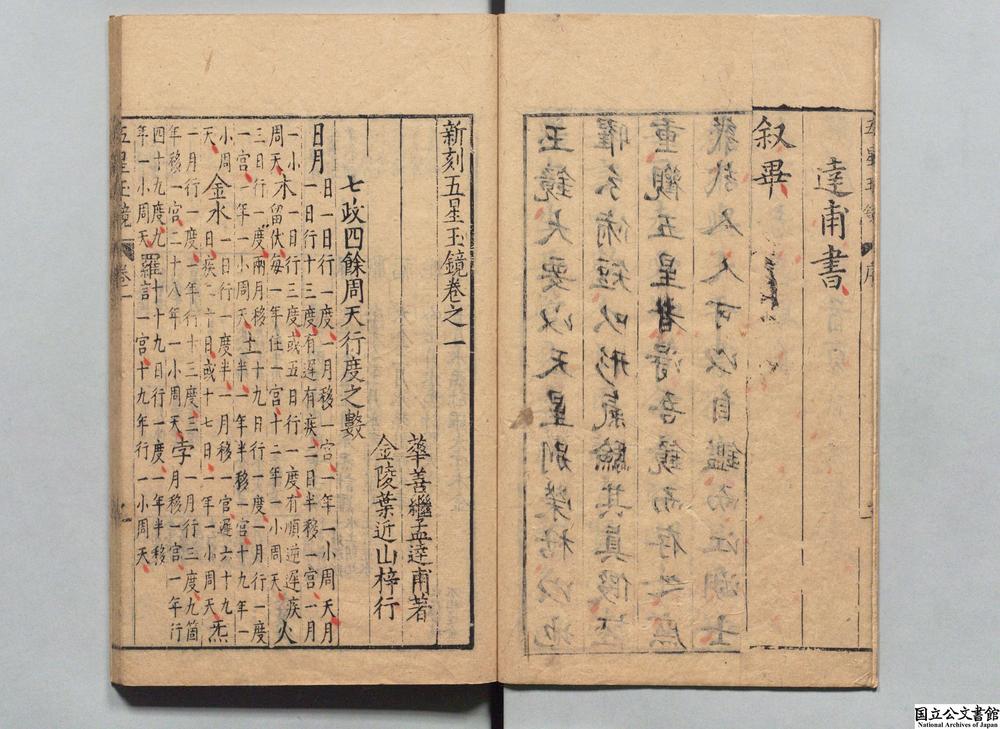 五星玉鏡 序
達甫書
叙畢
新刻五星玉鏡卷之一
華善繼孟達甫著
金陵葉近山梓行
七政四餘周天行度之數
日月 日一日行一度一月移一宮一年一小周天月
一日行十三度有遲有疾二日半移一宮一月
一小周天 木 一日行三度或五日行一度有順逆遲疾
留伏每一年住一宮十二年一小周天 火
三日行一度兩月移
一宮一年一小周天 土 十九日行一度一月行一度
半一年半移一宮十九年一
小周天 金水 一日行一度半一月移一宮遲六十九
日疾二十日或十七日一年一小周天 炁
一月行一度一年行十三度三
年移一宮二十八年一小周天 孛 一月行三度九箇
月移一宮一年行
四十九度九
年一小周天 羅計 十九日行一度一年半移
一宮十九年行一小周天
五星玉鏡 卷一
国立公文書館
National Archives of Japan